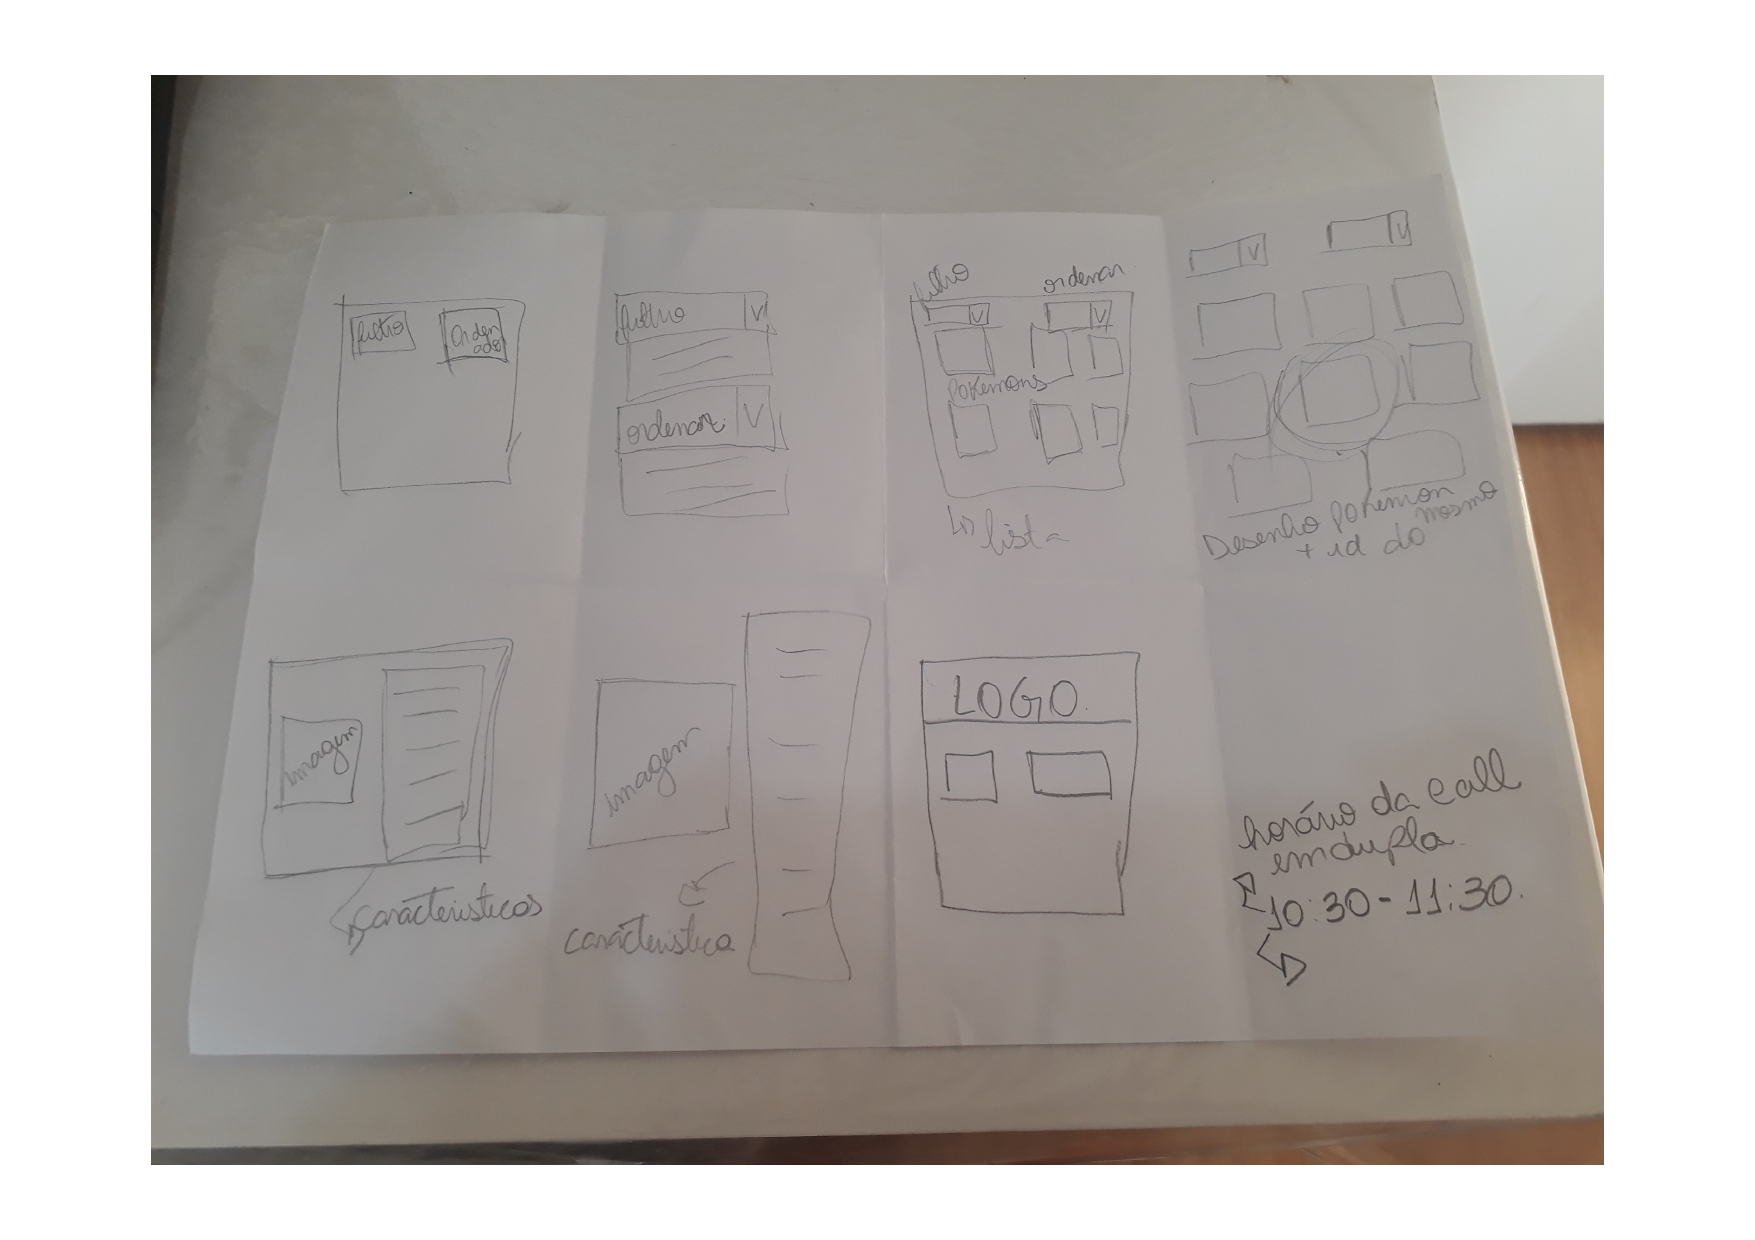 filtro
Orden
ado
filtro
V
ordenar
V
filtro
ordenar
V
V
Pokemons
lista
V
V
Desenho pokemon
+ id do mesmo
imagem
Carácteristicas
imagem
carácteristica
LOGO
horário da call
em dupla
10:30 - 11:30.